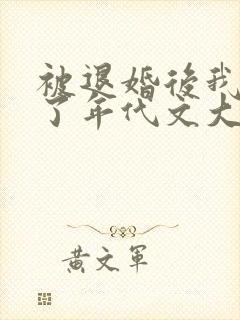 被退婚後我
了年代文大
黃文軍